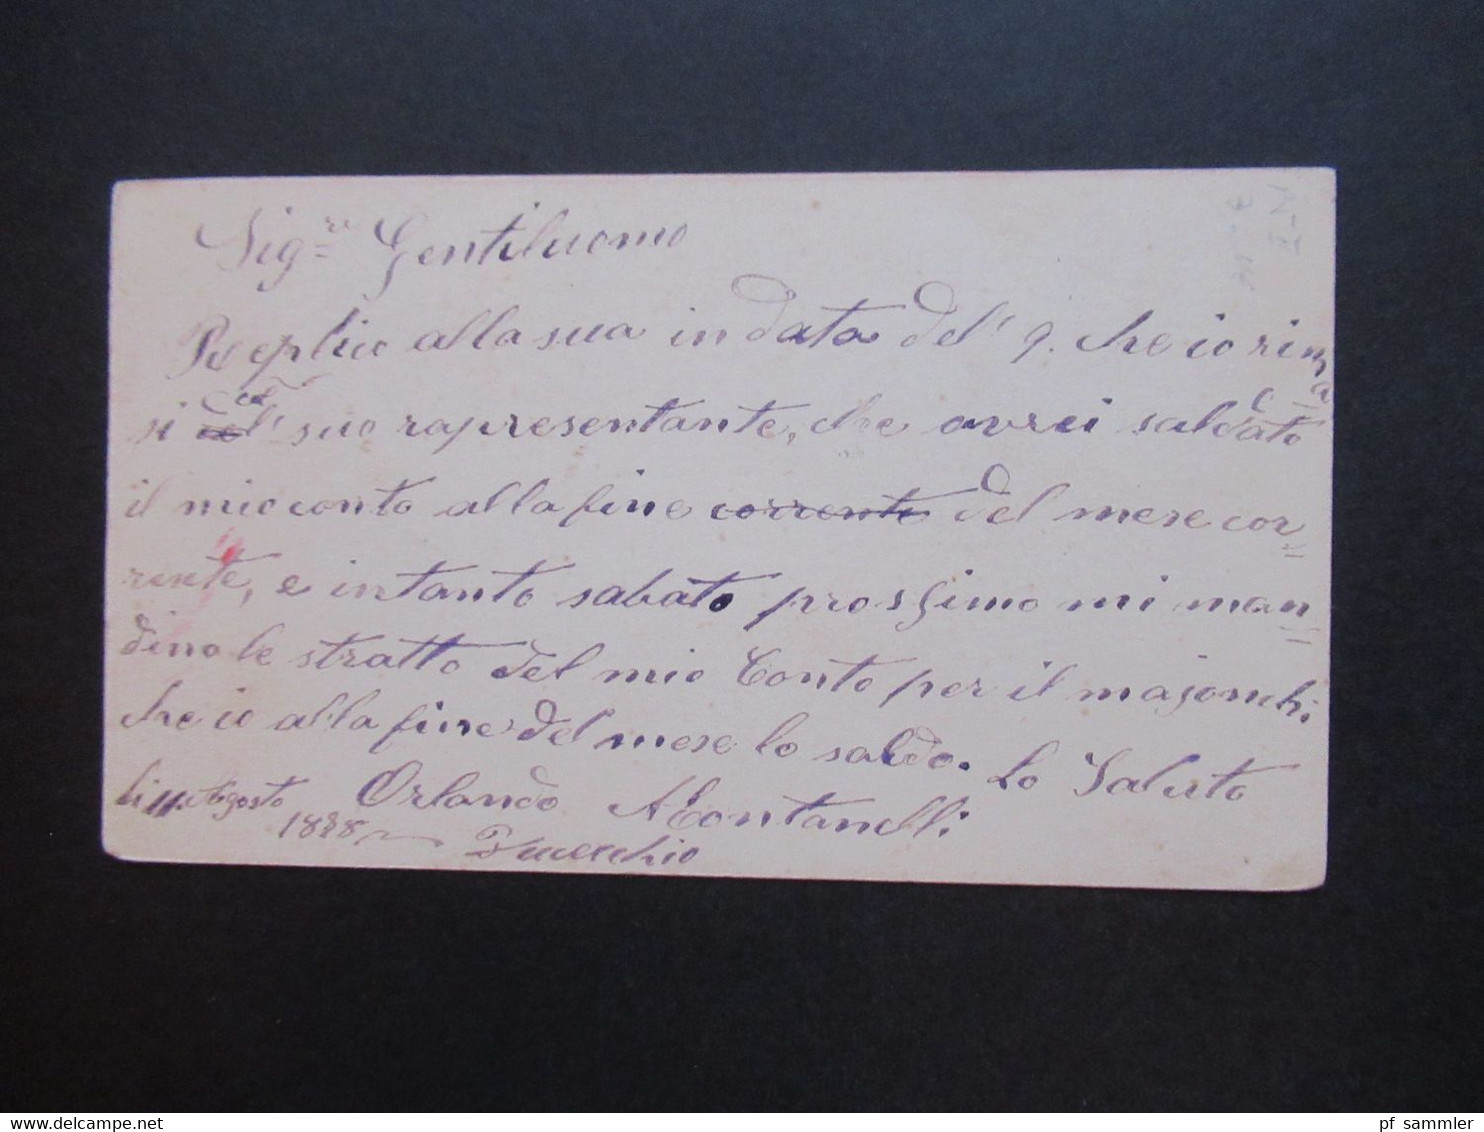 Sig.re Gentiluomo
Replico alla sua in data del' 9. che io rima
si col suo rapresentante, che avrei saldato
il mio conto alla fine corrente del mese cor=
rente, e intanto sabato prossimo mi man=
dino le stratto del mio Conto per il
che io alla fine del mese lo saldo. Lo Saluto
li 11 Agosto Orlando Montanelli
1888 Fucecchio
pf sammler
delcampe.net